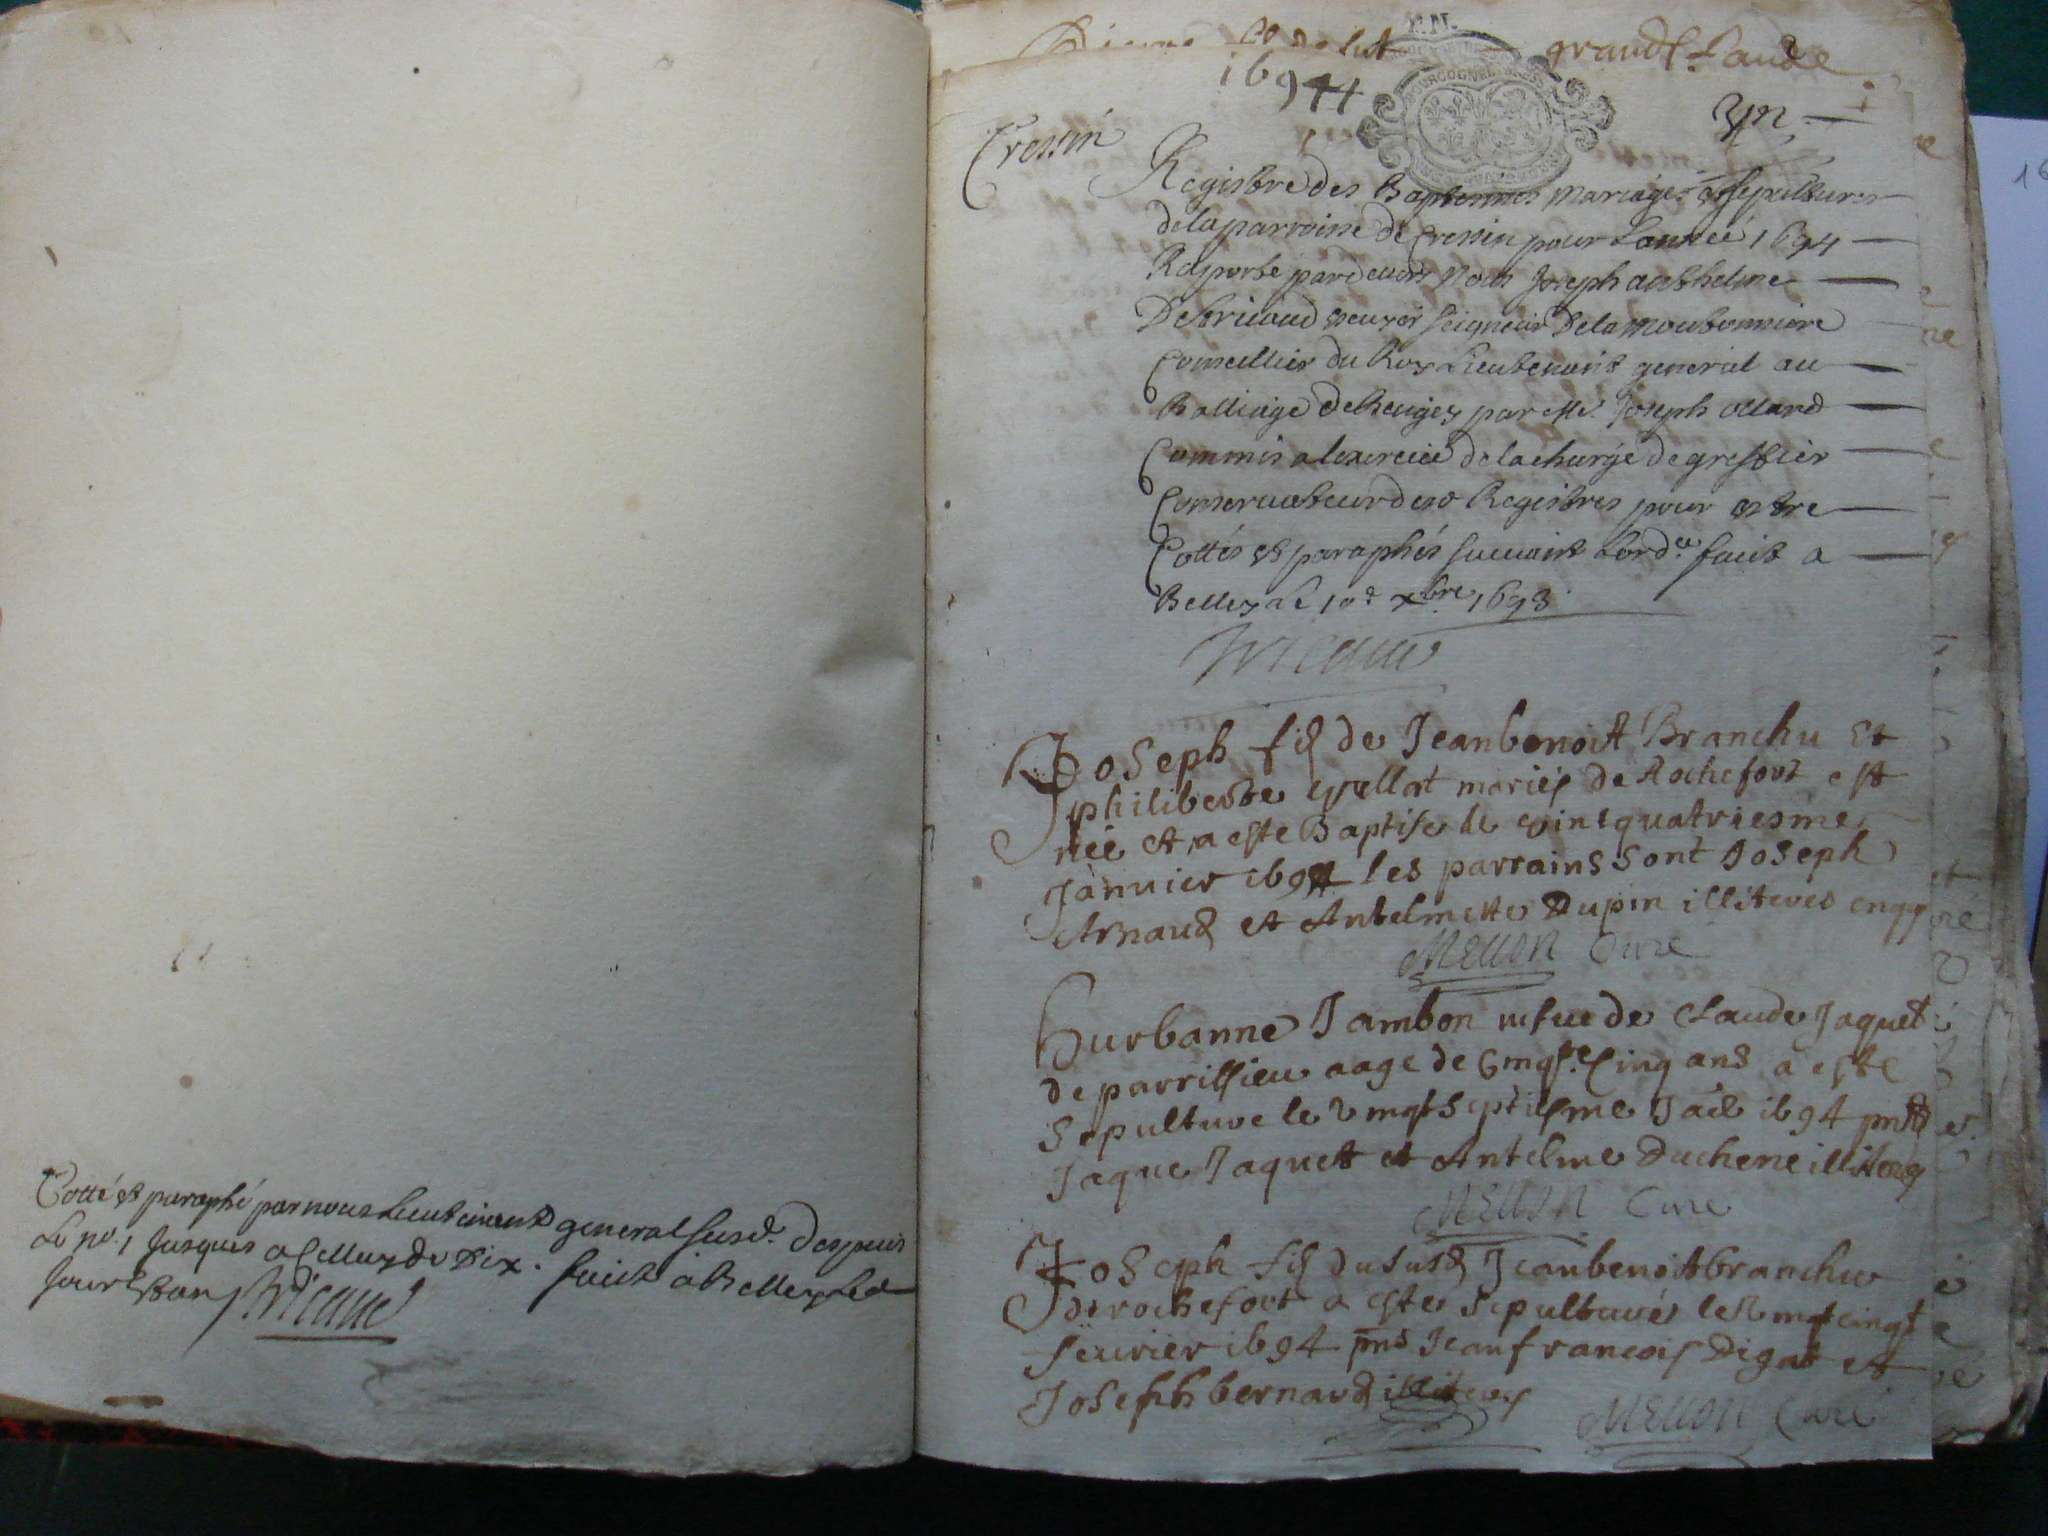 Cotté et paraphé par nous Lieutenant general susd. despuis
Le no. 1 Jusques a Celluy de Dix. faict a Belley Led
Jour et an
1694
Cressin
Registre des Baptesmes mariages et sepultures
de la parroisse de Cressin pour Lannée 1694
Raporte pardevers Nous Joseph anthelme
seigneur De la
Conseillier du Roy Lieutenant general au
Balliage de Beugey par Me. Joseph
Commis a lexercice de la charge de greffier
Conservateur des Registres pour estre
Cottés et paraphés suivant Lord.ce faict a
Belley Le 10e xbre 1693
Joseph fils de Jeanbenoit Branchu et
philiberte mariés de Rochefort est
née et a este Baptise le vintquatriesme
Janvier 1694 les parrains sont Joseph
Arnaud et Antelmette Dupin illiteres enqq
Mellon Cure
Hurbanne Jambon vefue de Claude Jaquet
de parrissieu aage de cinq.te cinq ans a este
Sepulture le vingtseptiesme 1694 pnts
Jaque Jaquet et Antelme Duchene illit enq
Mellon Cure
Joseph fils du susd Jeanbenoit branchu
de rochefort a este Sepulturé le vingtcinq
fevrier 1694 pnts Jeanfrancois Digat et
Joseph bernard illiteres
Mellon Curé